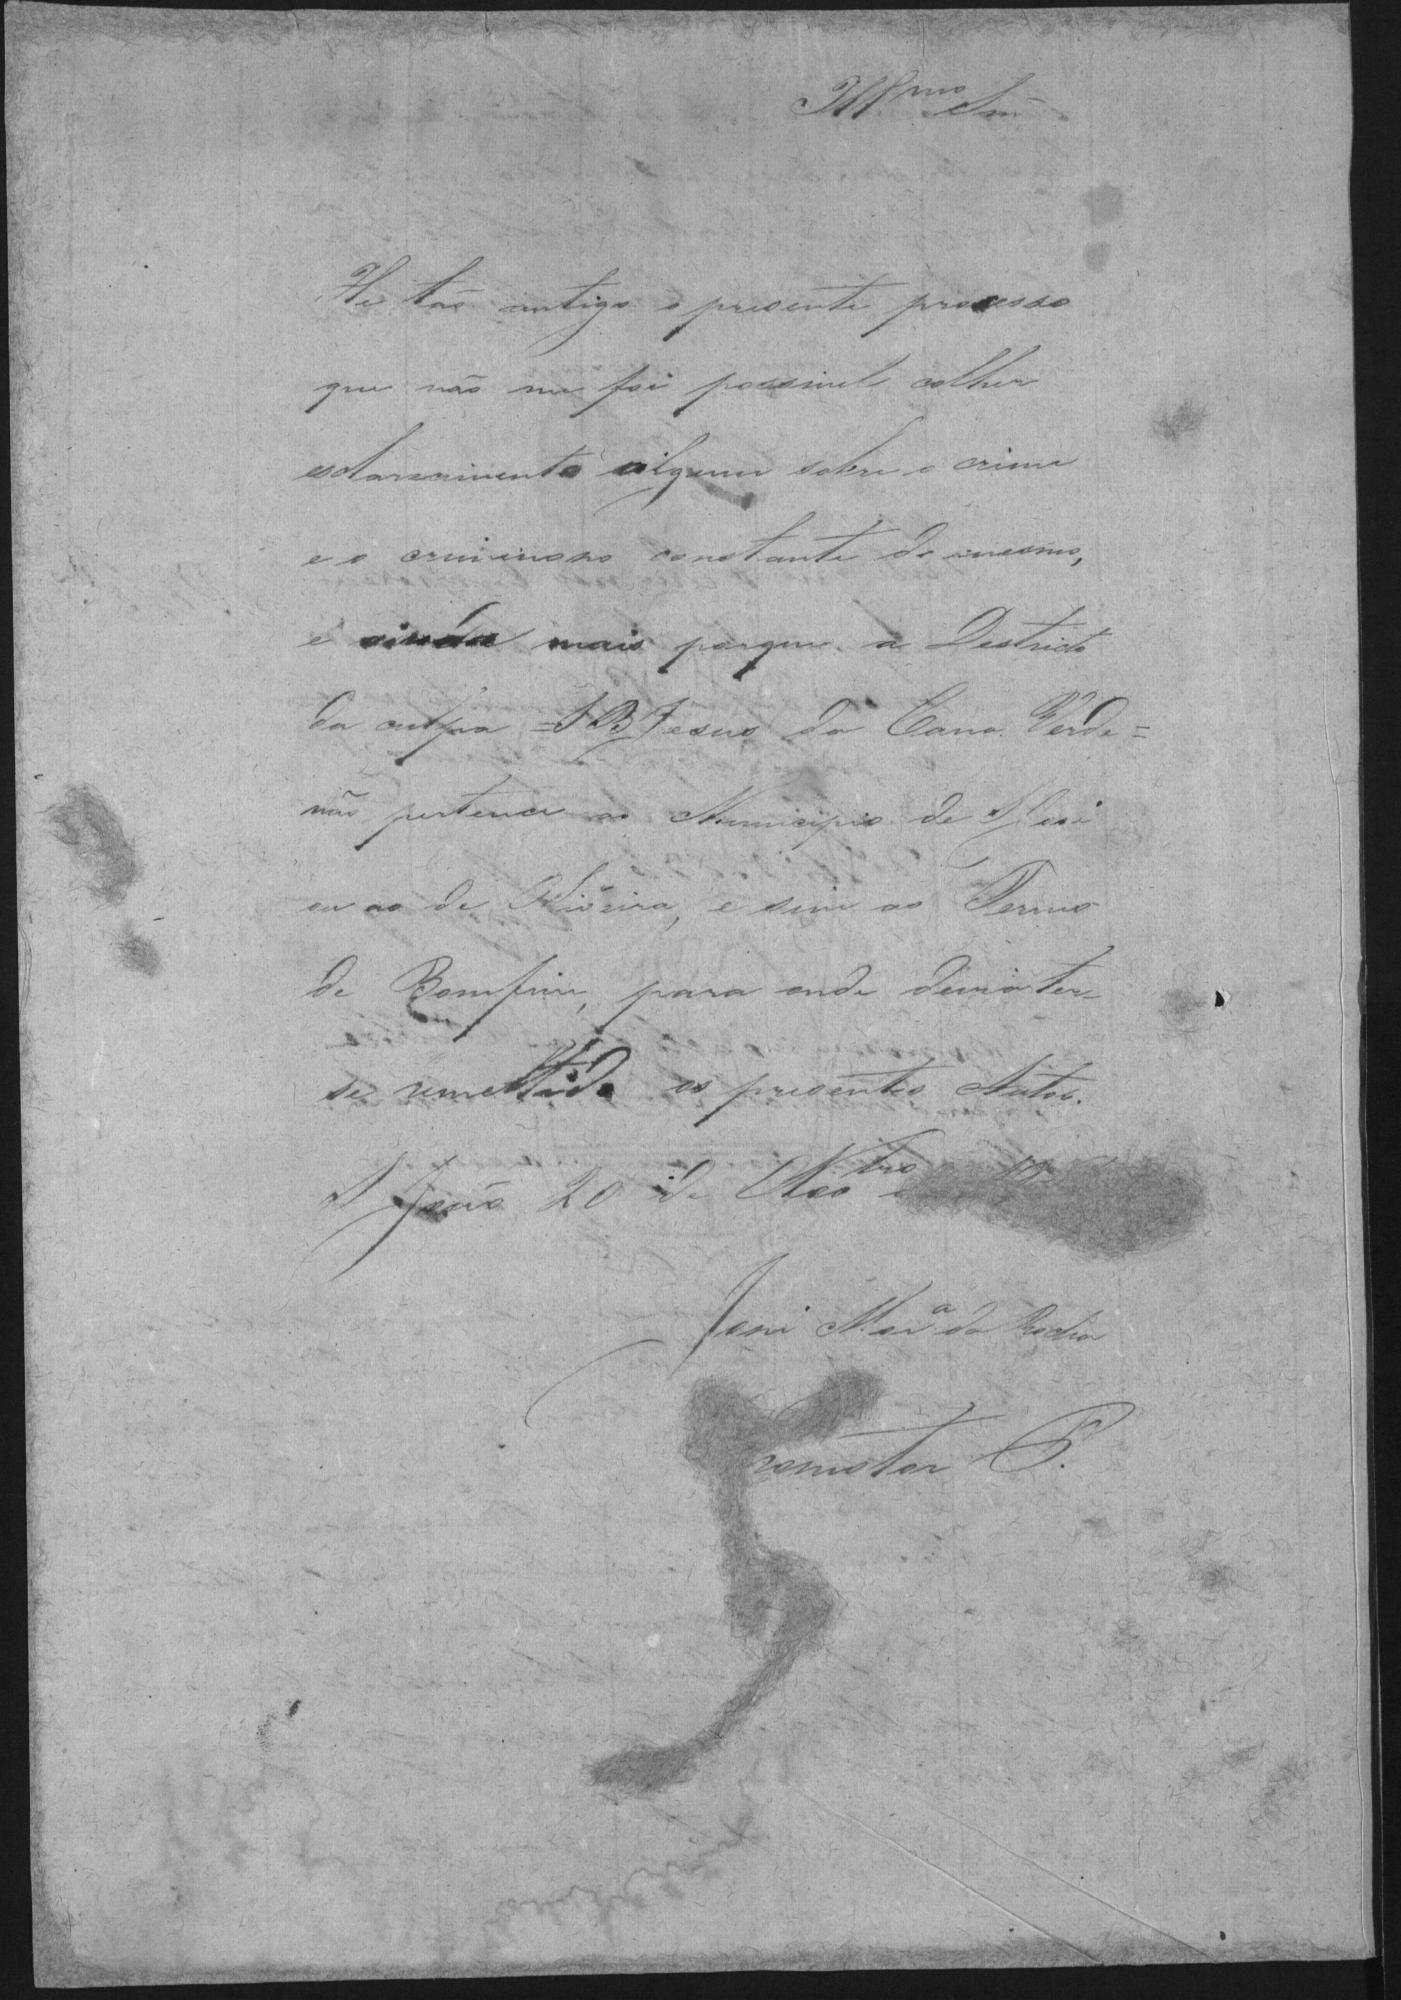 Ill.mo Snr.
He tão antigo o presente processo
que não me foi possivel colher
esclarecimento algum sobre o crime
e o criminoso constante do mesmo,
e ainda mais porque o Districto
da culpa = S B Jesus da Cana Verde =
não pertence ao Municipio de
ou ao de Oliveira, e sim ao Termo
de Bomfim, para onde devia ter-
se remettido os presentes Autos.
S João 20 de
José Mar.a da Rocha
Promotor P.